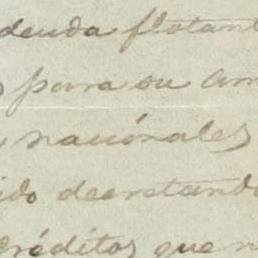 deuda flotant
para su am
nacionáles
ido decretando
créditos que n